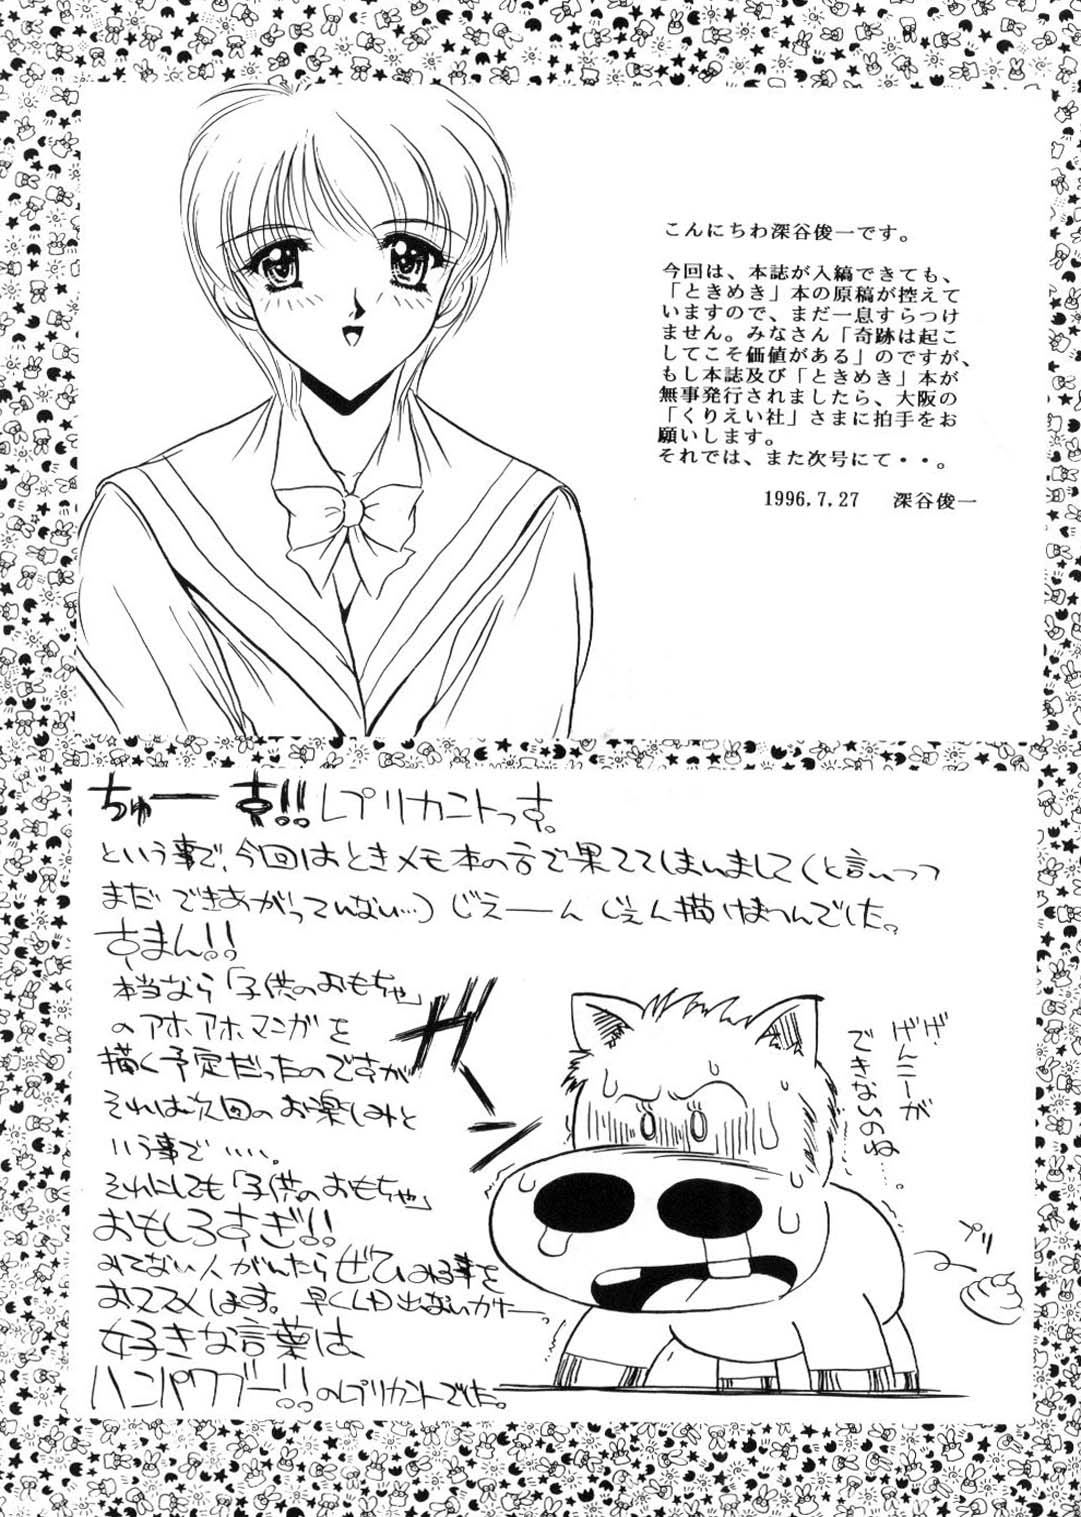 こんにちわ深谷俊一です。
今回は、本誌が入縞できても、
「ときめき」本の原稿が控えて
いますので、まだ一息すらつけ
ません。みなさん「奇跡は起こ
してこそ価値がある」のですが、
もし本誌及び「ときめき」本が
無事発行されましたら、大阪の
「くりえい社」さまに拍手をお
願いします。
それでは、また次号にて・・。
1996,7,27 深谷俊一
ちゅーす!!レプリカントっす。
という事で、今回はときメモ本の方で果ててしまいまして(と言いつつ
まだできあがっていない…)じえーんじぇん描けまへんでした。
すまん!!
本当なら「子供のおもちゃ」
のアホアホマンガを
描く予定だったのですが
それは次回のお楽しみと
いう事で‥‥。
それにしても「子供のおもちゃ」
おもしろすぎ!!
みてない人がいたらぜひみる事を
おススメします。早くLD出ないカナー。
好きな言葉は
ハンパワブー!!のレプリカントでした。
ガーン
ゲ、
げんこーが
できないのね……。
プリ